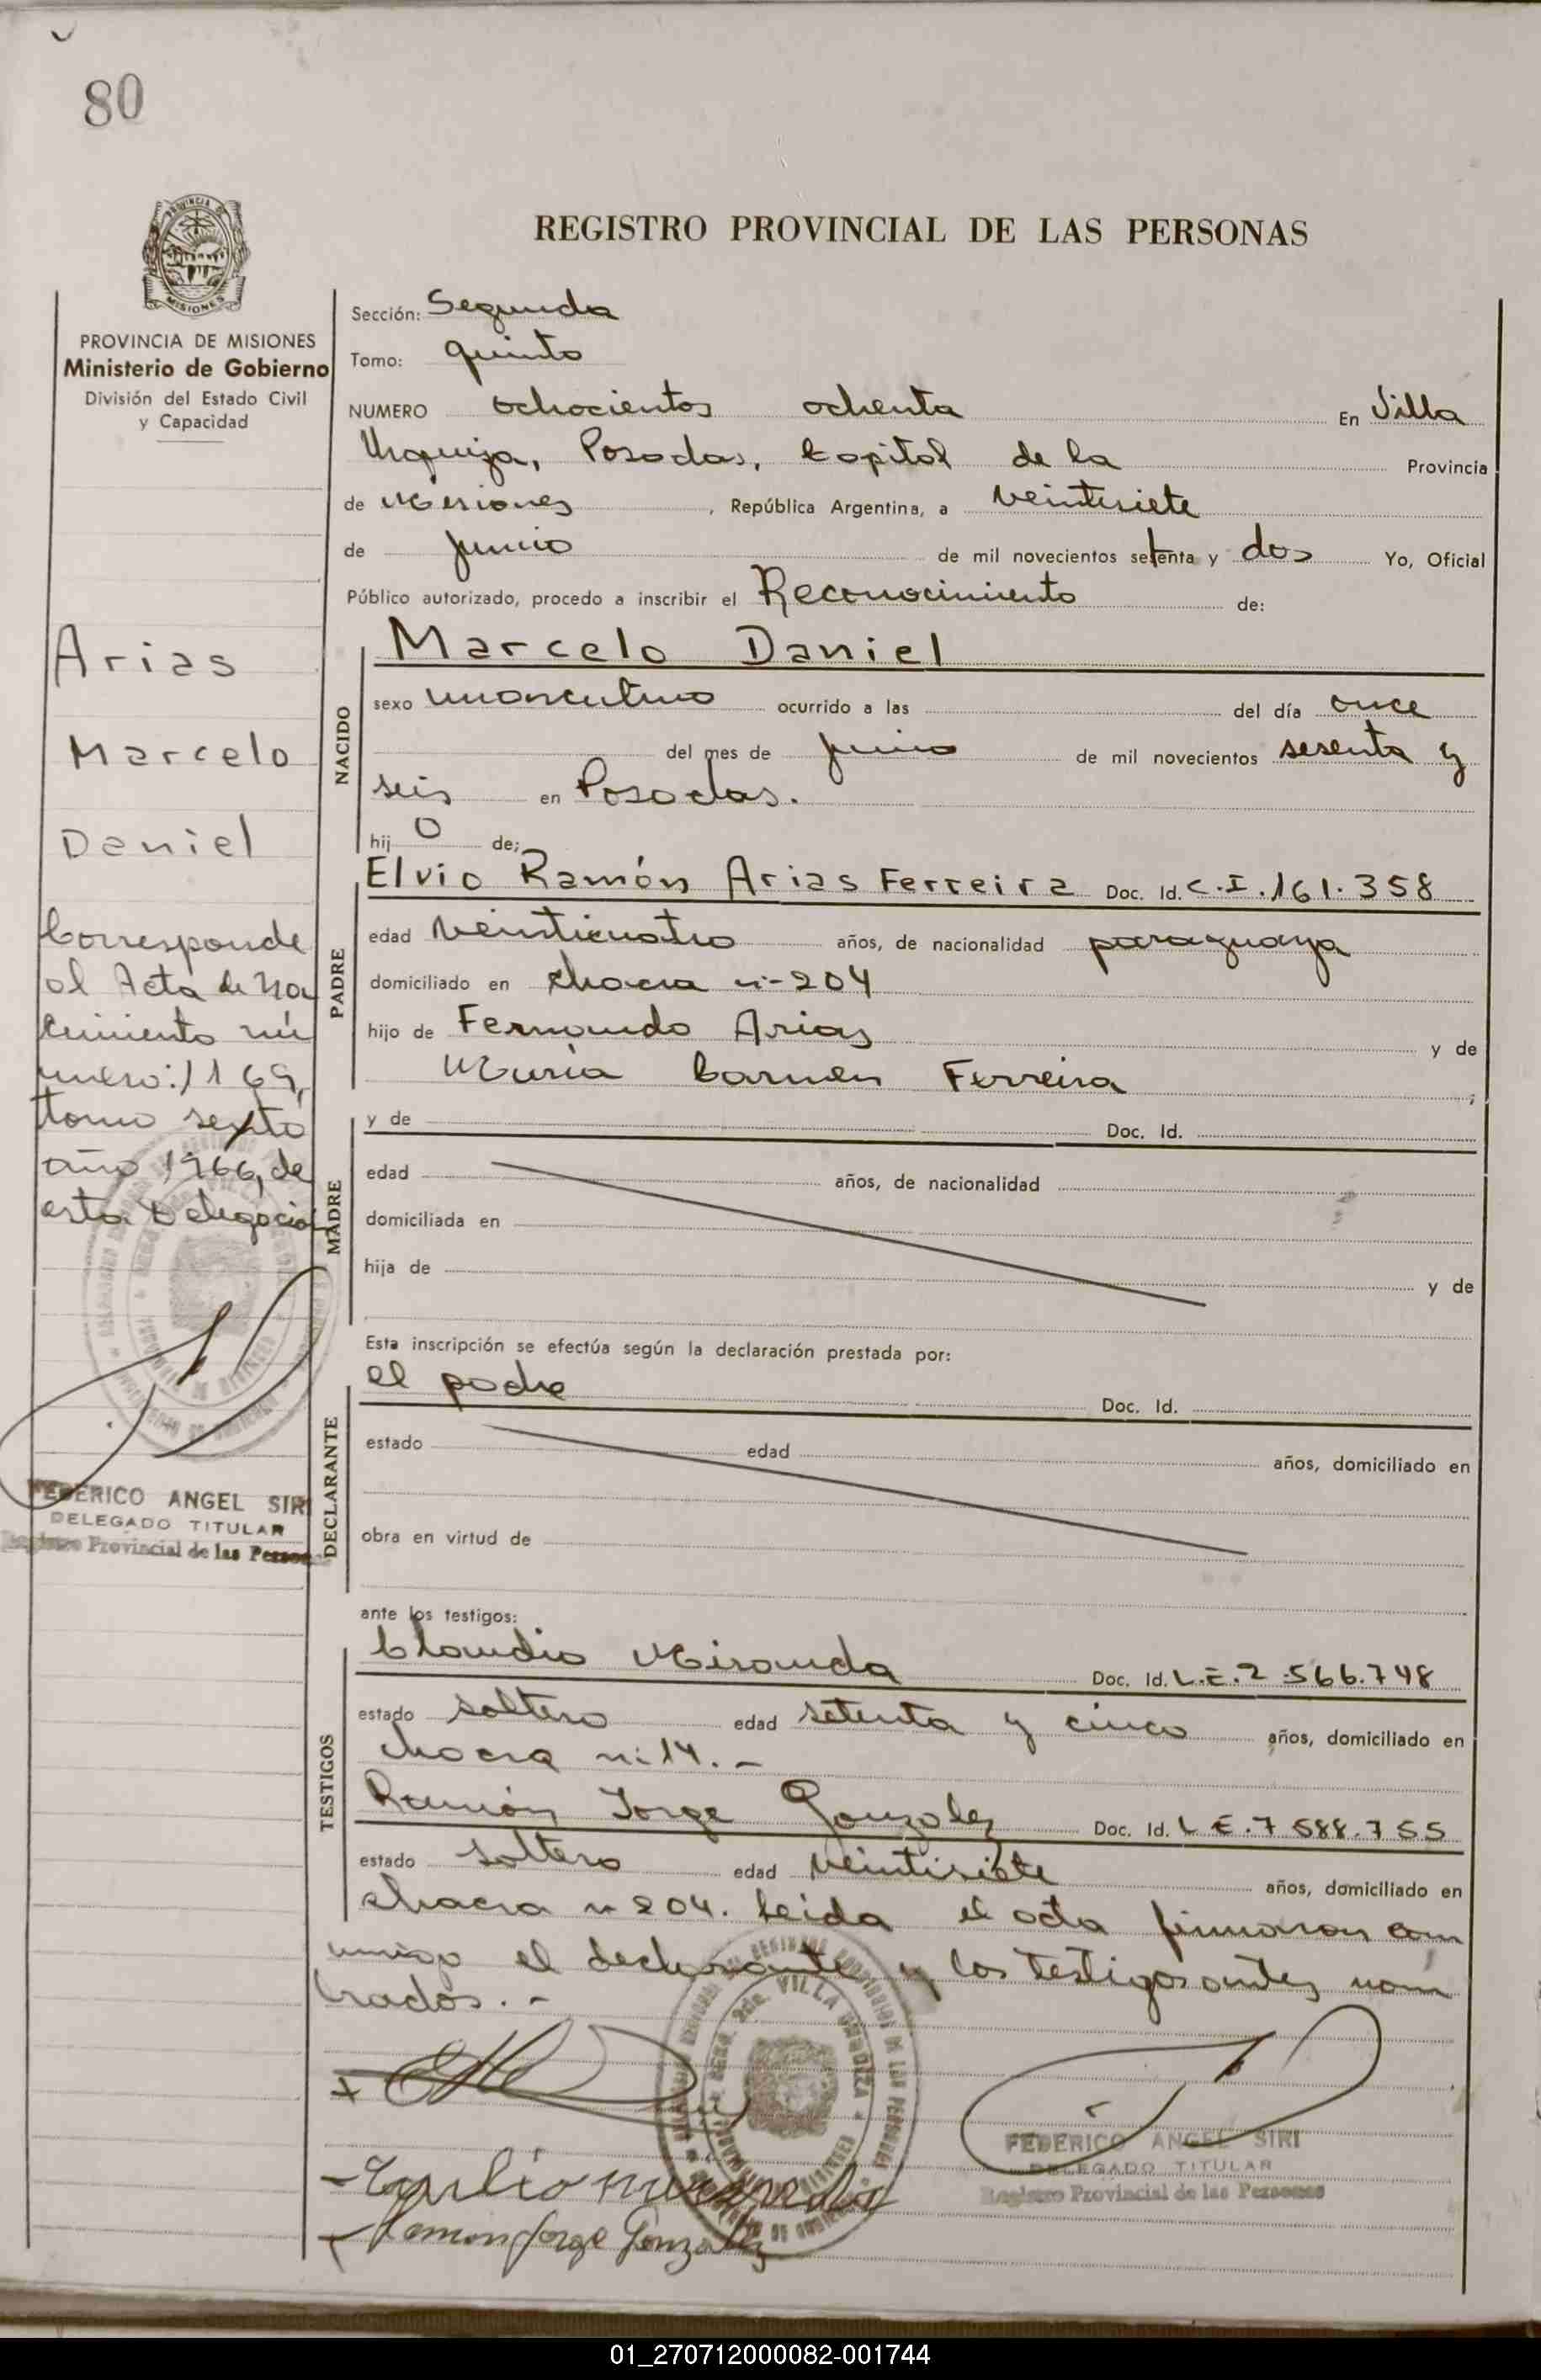 80
REGISTRO PROVINCIAL DE LAS PERSONAS
PROVINCIA DE MISIONES
Ministerio de Gobierno
División del Estado Civil
y Capacidad
Arias
Marcelo
Daniel
Corresponde
al Acta de Na
cimiento nú
mero: 1169,
tomo sexto
año 1966, de
esta Delegación
FEDERICO ANGEL SIRI
DELEGADO TITULAR
Registro Provincial de las Personas
Sección: Segunda
Tomo: quinto
NUMERO ochocientos ochenta En Villa
Urquiza, Posadas, Capital de la Provincia
de Misiones, República Argentina, a veintisiete
de junio de mil novecientos setenta y dos Yo, Oficial
Público autorizado, procedo a inscribir el Reconocimiento de:
NACIDO
Marcelo Daniel
sexo masculino ocurrido a las del día once
del mes de junio de mil novecientos sesenta y
seis en Posadas.
hijo de:
PADRE
Elvio Ramón Arias Ferreira Doc. Id. C.I.161.358
edad veinticuatro años, de nacionalidad paraguaya
domiciliado en chacra n-204
hijo de Fernando Arias y de
María Carmen Ferreira ;
MADRE
y de Doc. Id.
edad años, de nacionalidad
domiciliada en
hija de y de
Esta inscripción se efectúa según la declaración prestada por:
DECLARANTE
el padre Doc. Id.
estado edad años, domiciliado en
obra en virtud de
ante los testigos:
TESTIGOS
Claudio Miranda Doc. Id. L.E.2.566.748
estado soltero edad setenta y cinco años, domiciliado en
chacra n: 14.-
Ramón Jorge Gonzalez Doc. Id. L.E.7.588.755
estado soltero edad veintisiete años, domiciliado en
chacra n 204. Leida el acta firmaron con
migo el declarante y los testigos antes nom
brados.-
VILLA URQUIZA
FEDERICO ANGEL SIRI
DELEGADO TITULAR
Registro Provincial de las Personas
Ramon Jorge Gonzalez
01_270712000082-001744